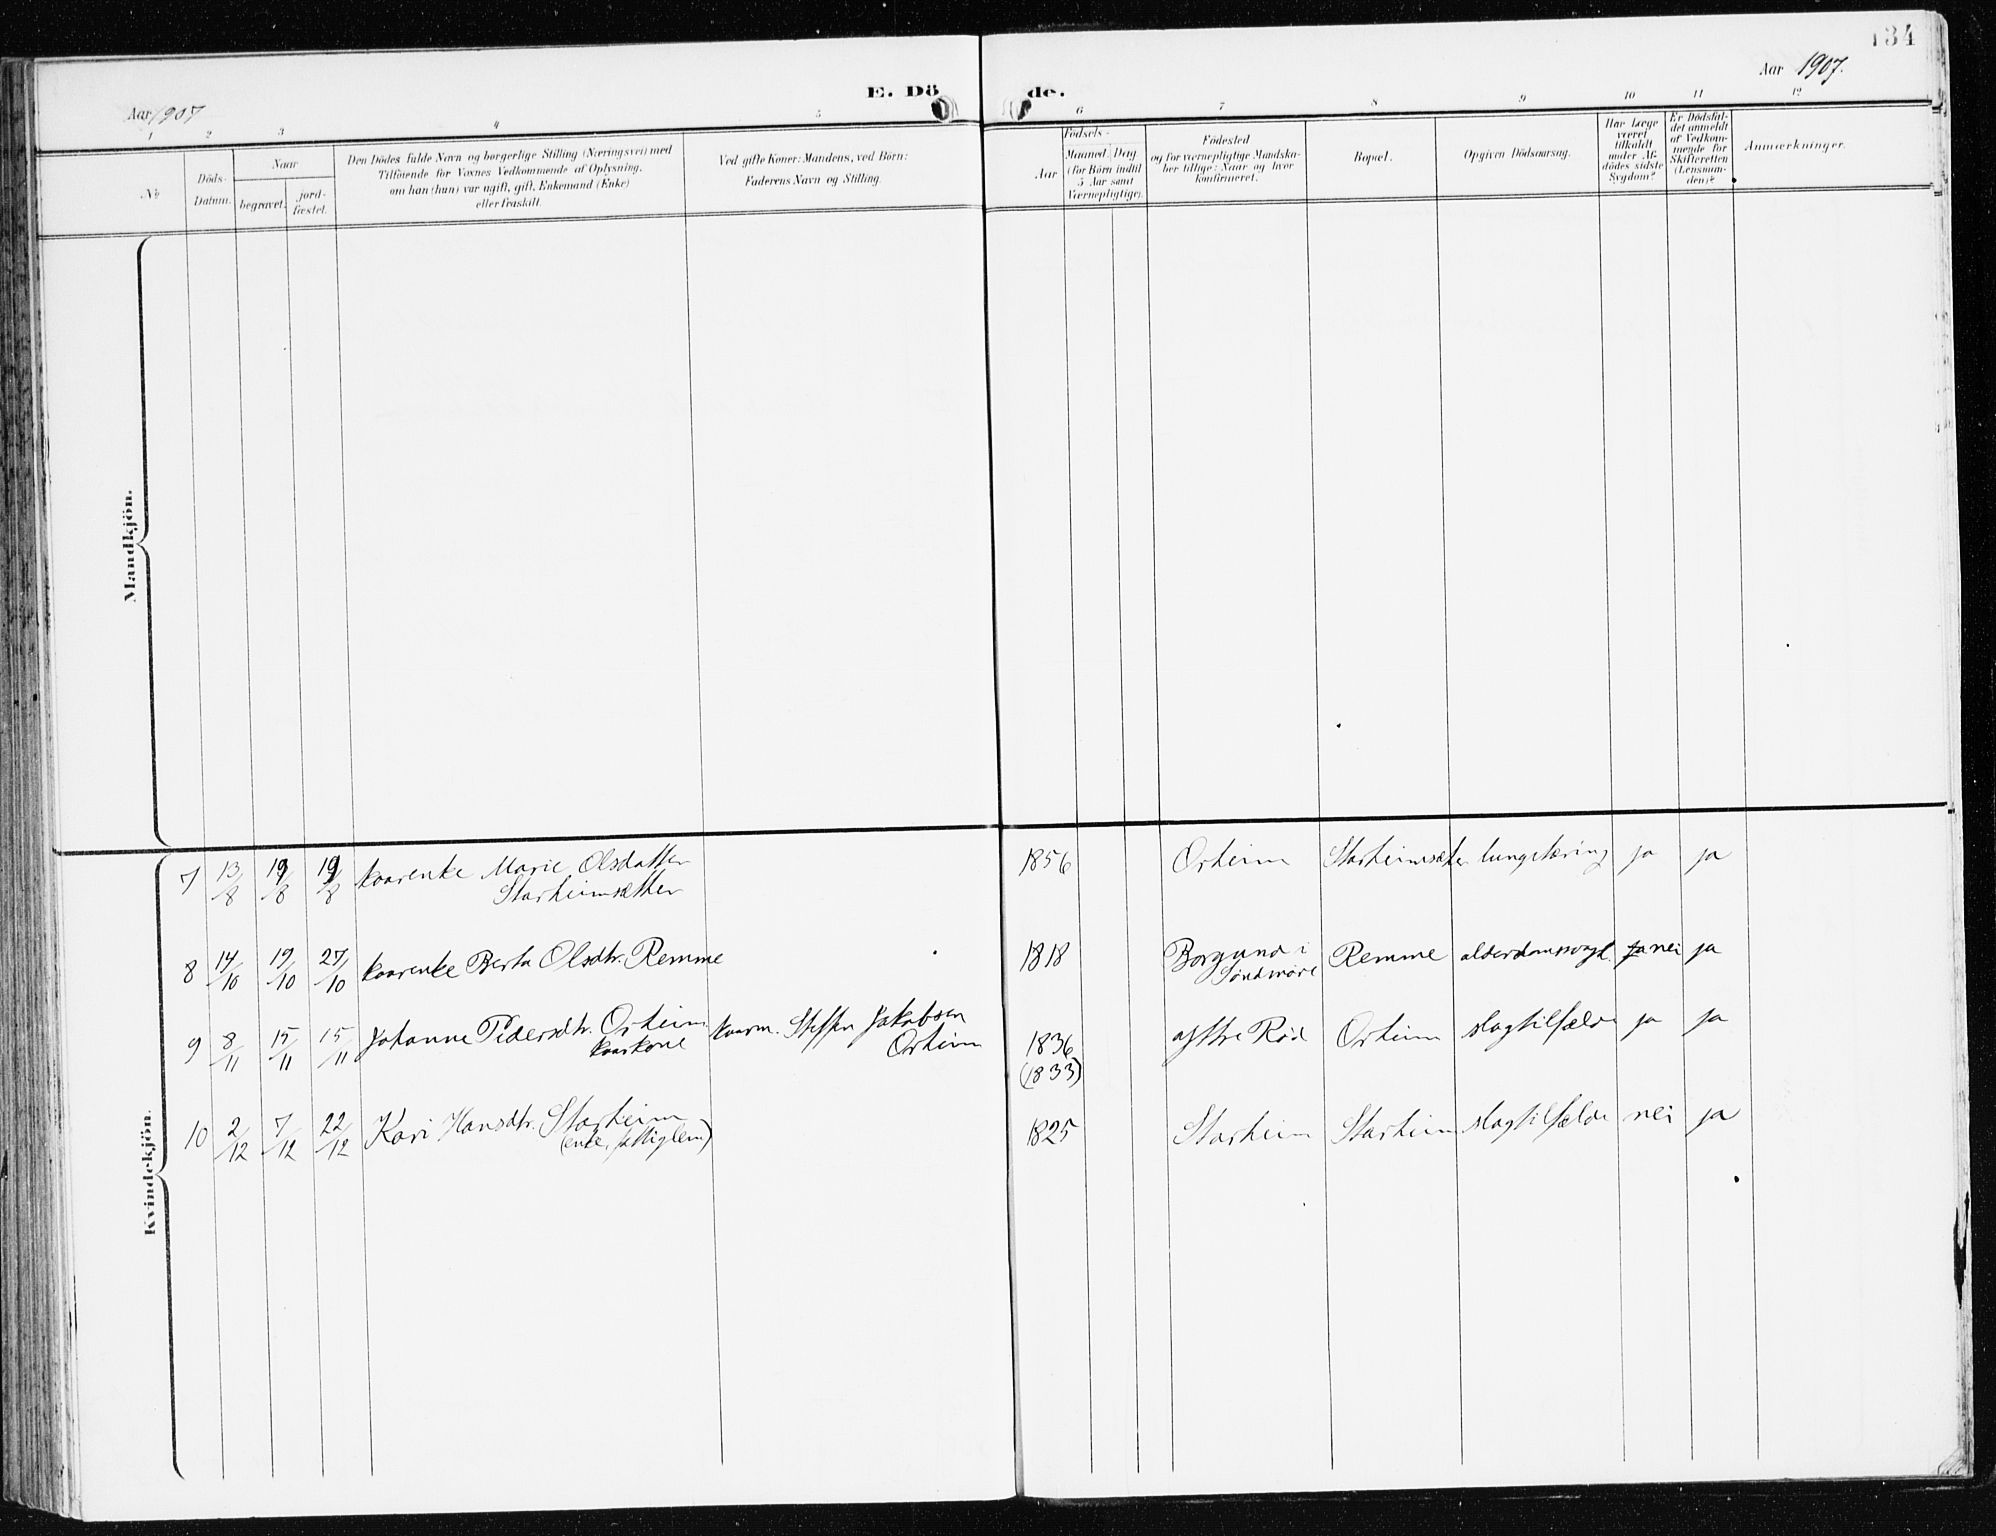 134
Aar 1907
E. Dö
de.
Aar 1907.
1 2 3 4 5 6 7 8 9 10 11 12
No
Döds-
Datum.
Naar
begravet.
jord-
fæstet.
Den Dödes fulde Navn og borgerlige Stilling (Næringsvei) med
Tilföiende for Voxnes Vedkommende af Oplysning,
om han (hun) var ugift, gift, Enkemand (Enke)
eller fraskilt.
Ved gifte Koner: Mandens, ved Börn:
Faderens Navn og Stilling.
Födsels-
Aar
Maaned. Dag
(for Börn indtil
5 Aar samt
Værnepligtige).
Födested
og for værnepligtige Mandska-
ber tillige: Naar og hvor
konfirmeret.
Bopæl.
Opgiven Dödsaarsag.
Har Læge
været
tilkaldt
under Af-
dödes sidste
Sygdom?
Er Dödsfal-
det anmeldt
af Vedkom-
mende for
Skifteretten
(Lensman-
den)?
Anmærkninger.
Mandkjön.
Kvindekjön.
7 13/8 19/8 19/8 kaarenke Marie Olsdatter 1856 Orheim Starheimsæter lungetæring ja ja
Starheimsæther
8 14/10 19/10 27/10 kaarenke Berta Olsdtr. Remme 1818 Borgund i Remme alderdomssvagh. ja nei ja
Søndmøre
9 8/11 15/11 15/11 Johanne Pedersdtr. Orheim kaarm. Steffen Jakobsen 1836 Ytre Rød Orheim slagtilfælde ja ja
kaarkone Orheim
(1833)
10 2/12 7/12 22/12 Kari Hansdtr. Starheim 1825 Starheim Starheim slagtilfælde nei ja
(enke, fattiglem)